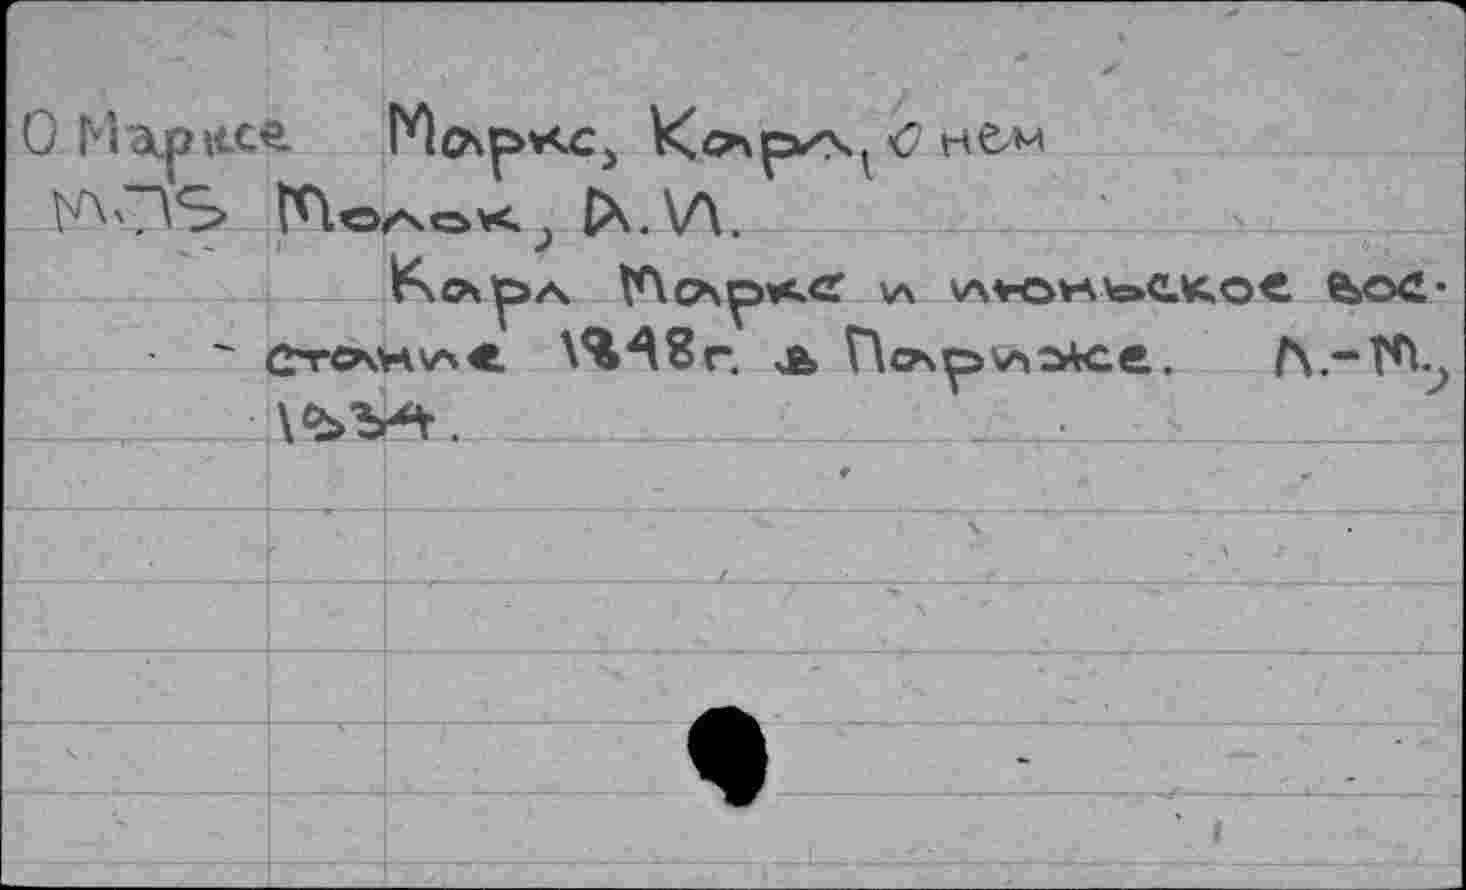 О Марксе Маркс, Карл, О нем
М75 Молок, А. И.
Карл Маркс и июньское вос-
стание 1848 г. в Париже. Л.-М.,
1934.